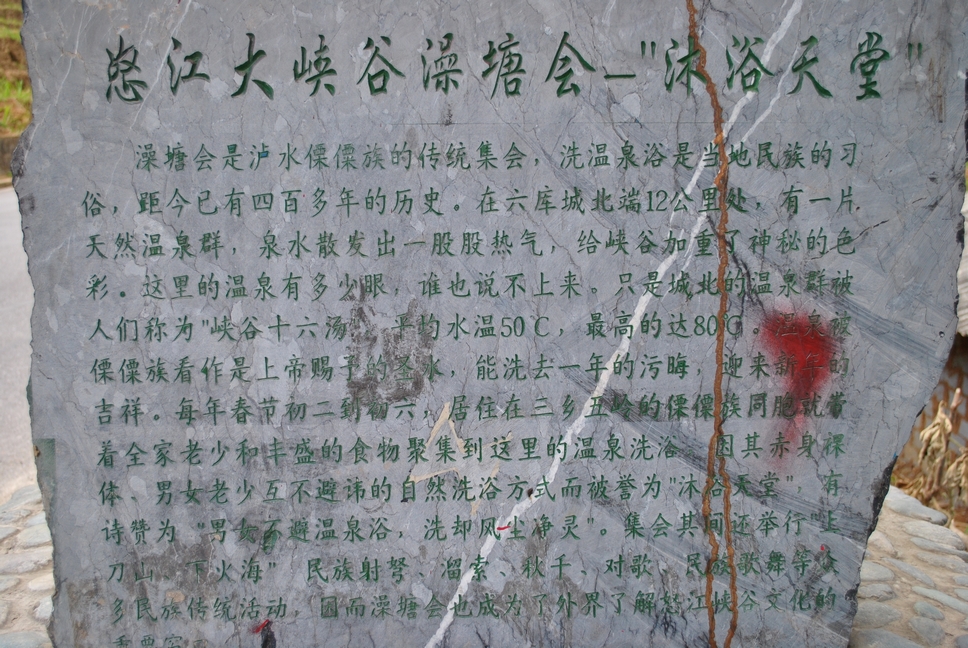 怒江大峡谷澡塘会—"沐浴天堂"
澡塘会是泸水傈僳族的传统集会，洗温泉浴是当地民族的习
俗，距今已有四百多年的历史。在六库城北端12公里处，有一片
天然温泉群，泉水散发出一股股热气，给峡谷加重了神秘的色
彩。这里的温泉有多少眼，谁也说不上来。只是城北的温泉群被
人们称为"峡谷十六汤"，平均水温50℃，最高的达80℃。温泉被
傈僳族看作是上帝赐予的圣水，能洗去一年的污晦，迎来新年的
吉祥。每年春节初二到初六，居住在三乡五岭的傈僳族同胞就赏
着全家老少和丰盛的食物聚集到这里的温泉洗浴，因其赤身裸
体、男女老少互不避讳的自然洗浴方式而被誉为"沐浴天堂"，有
诗赞为"男女不避温泉浴，洗却风尘净灵"。集会其间还举行"上
刀山、下火海"、民族射弩、溜索、秋千、对歌、民族歌舞等众
多民族传统活动，因而澡塘会也成为了外界了解怒江峡谷文化的
重要窗